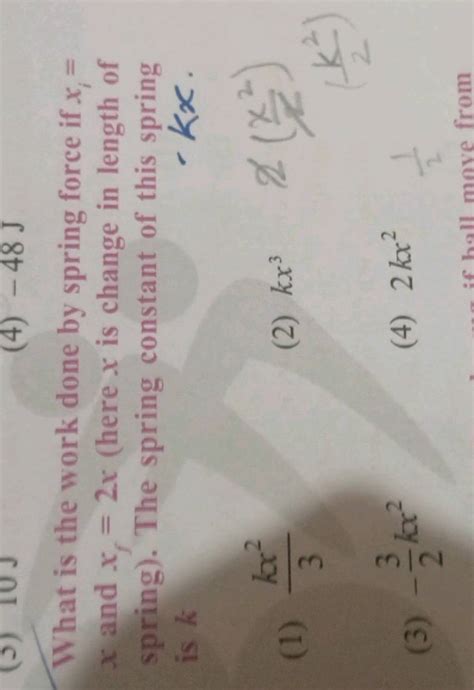 (3) 10 J (4) – 48 J
What is the work done by spring force if xᵢ =
x and x_f = 2x (here x is change in length of
spring). The spring constant of this spring
is k
kx.
(1) kx²/3 (2) kx³
(x²/2)
(k²/2)
(3) – 3/2 kx² (4) 2kx²
1/2
if ball move from